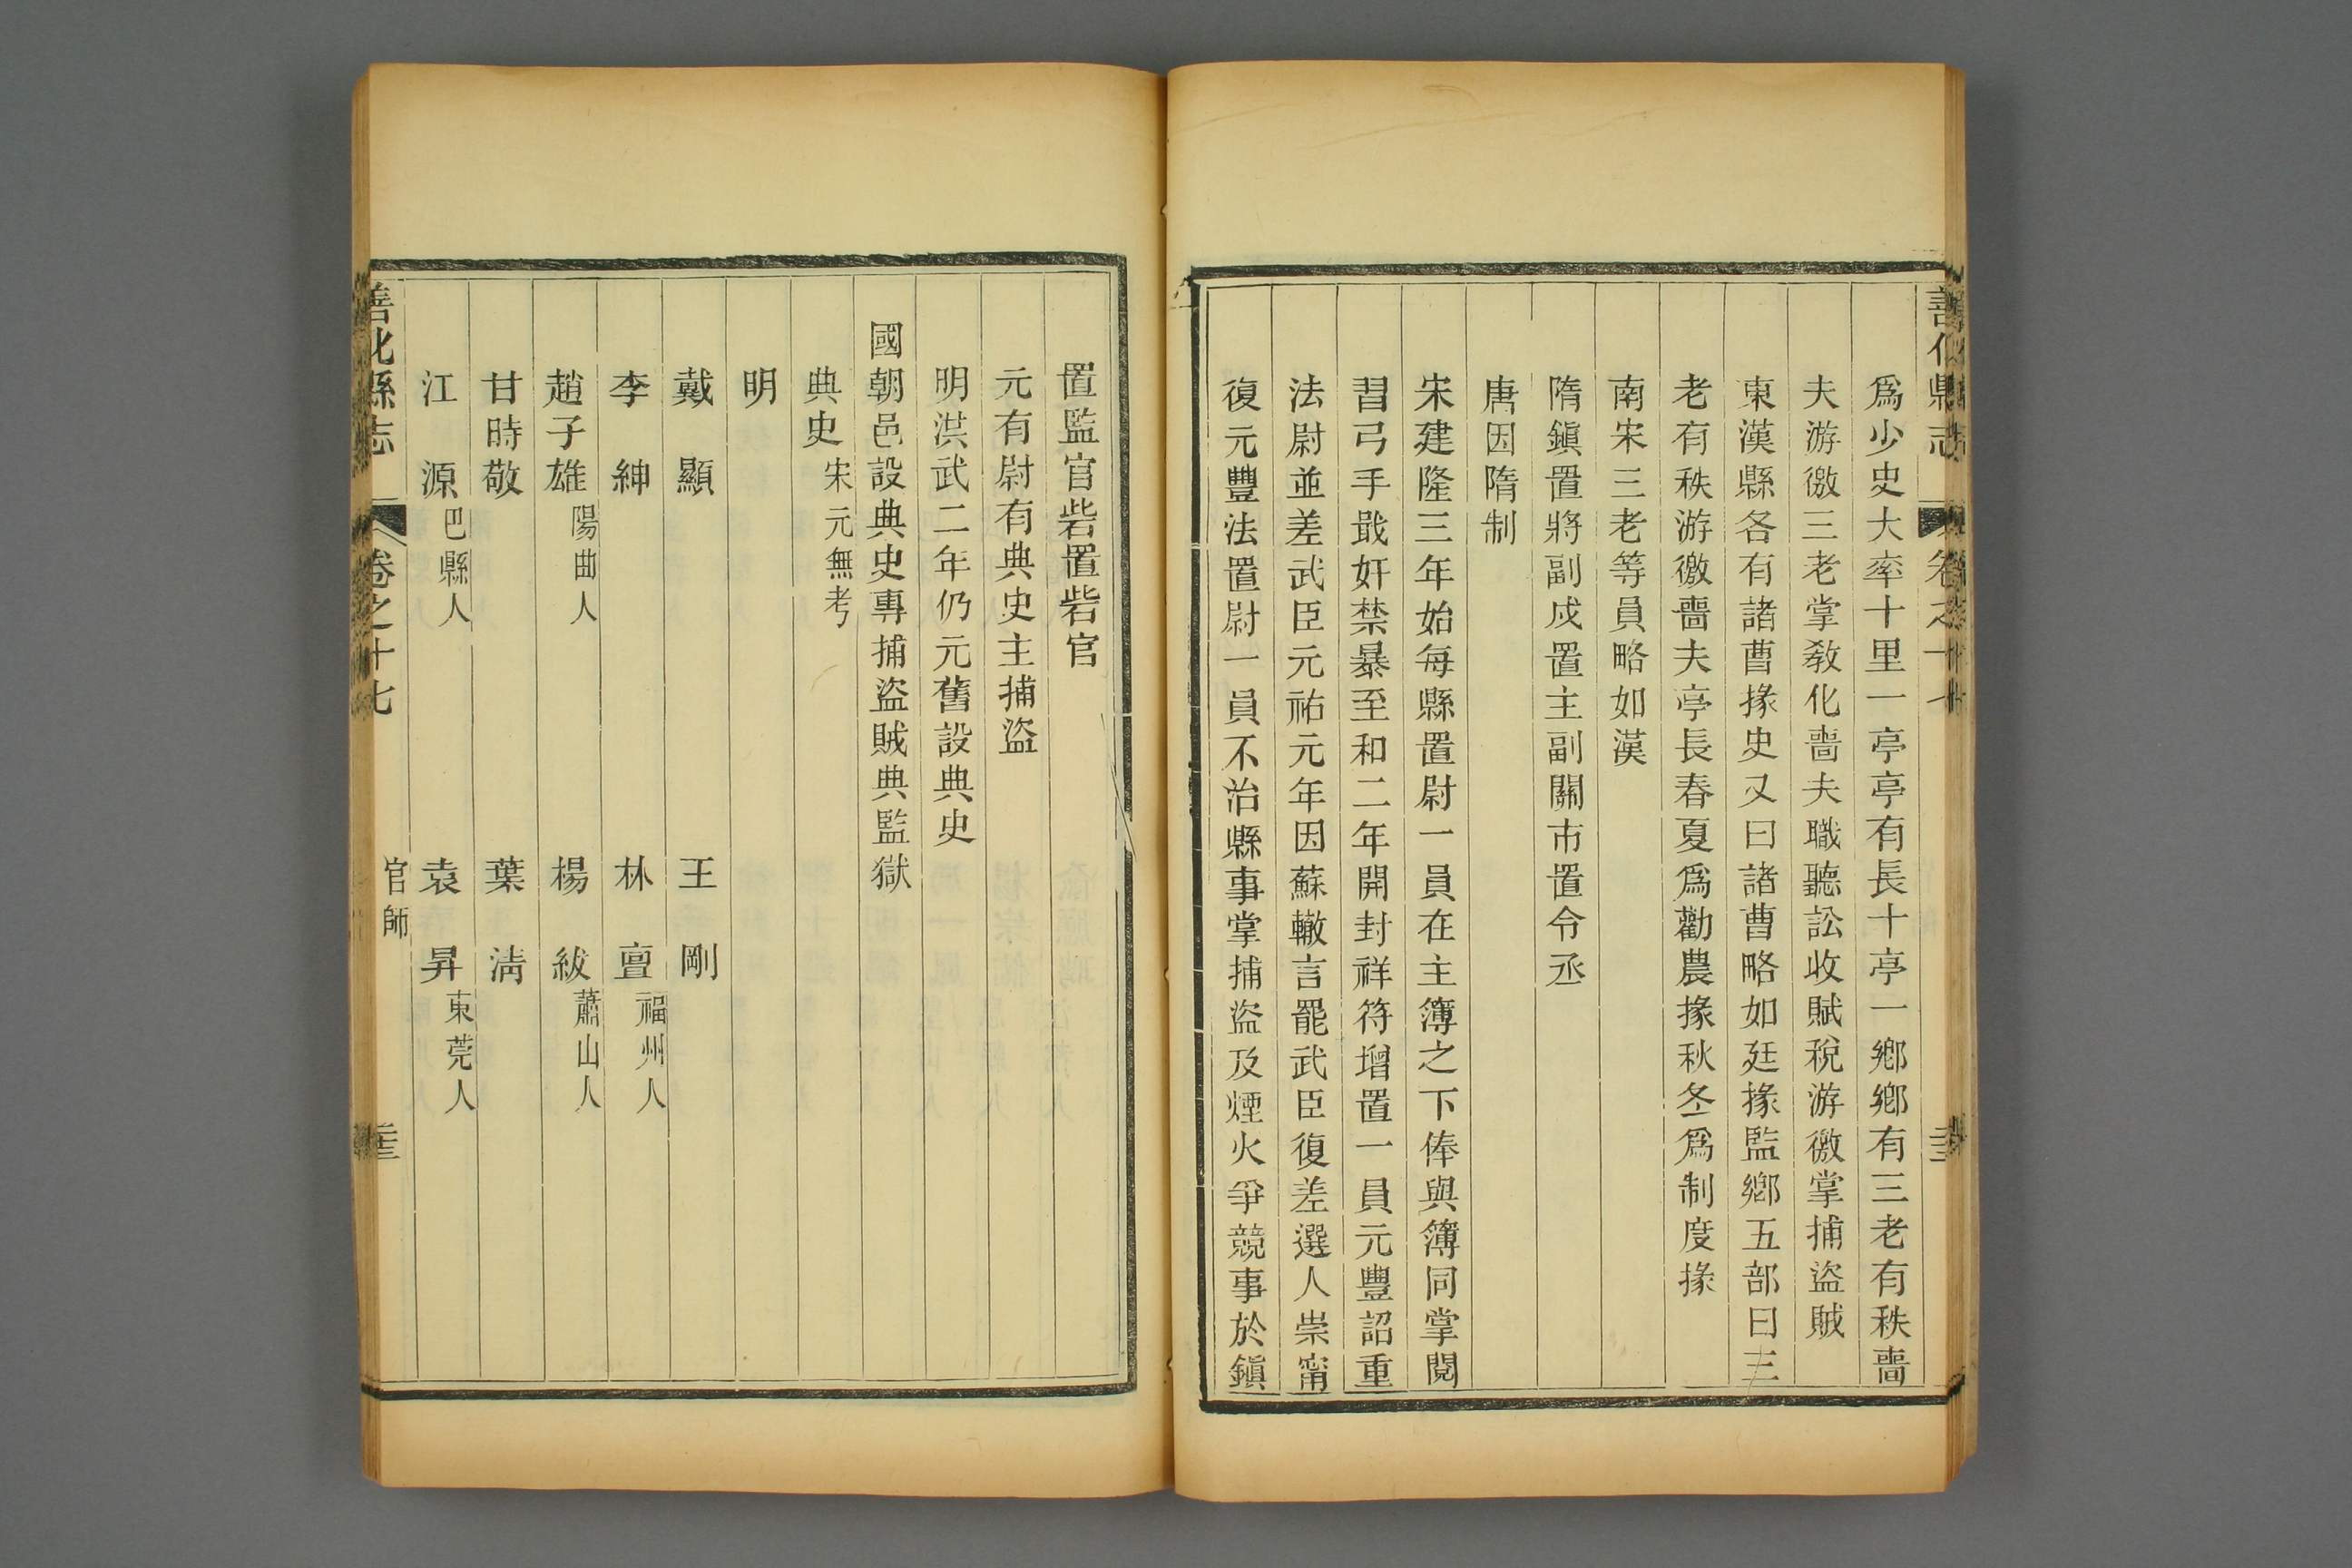 善化縣志 卷之十七
爲少史大率十里一亭亭有長十亭一鄉鄉有三老有秩嗇
夫游徼三老掌教化嗇夫職聽訟收賦稅游徼掌捕盜賊
東漢縣各有諸曹掾史又曰諸曹略如廷掾監鄉五部曰三
老有秩游徼嗇夫亭長春夏爲勸農掾秋冬爲制度掾
南宋三老等員略如漢
隋鎭置將副戍置主副關市置令丞
唐因隋制
宋建隆三年始每縣置尉一員在主簿之下俸與簿同掌閱
習弓手戢奸禁暴至和二年開封祥符增置一員元豐詔重
法尉並差武臣元祐元年因蘇轍言罷武臣復差選人崇甯
復元豐法置尉一員不治縣事掌捕盜及煙火爭競事於鎭
置監官砦置砦官
元有尉有典史主捕盜
明洪武二年仍元舊設典史
國朝邑設典史專捕盜賊典監獄
典史 宋元無考
明
戴 顯 王 剛
李 紳 林 亶 福州人
趙子雄 陽曲人 楊 紱 蕭山人
甘時敬 葉 清
江 源 巴縣人 袁 昇 東莞人
善化縣志 卷之十七 官師 二十三